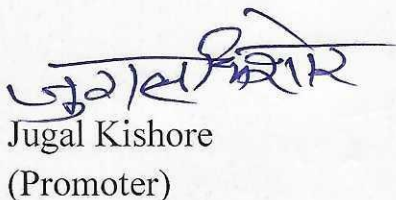 जुगल किशोर
Jugal Kishore
(Promoter)